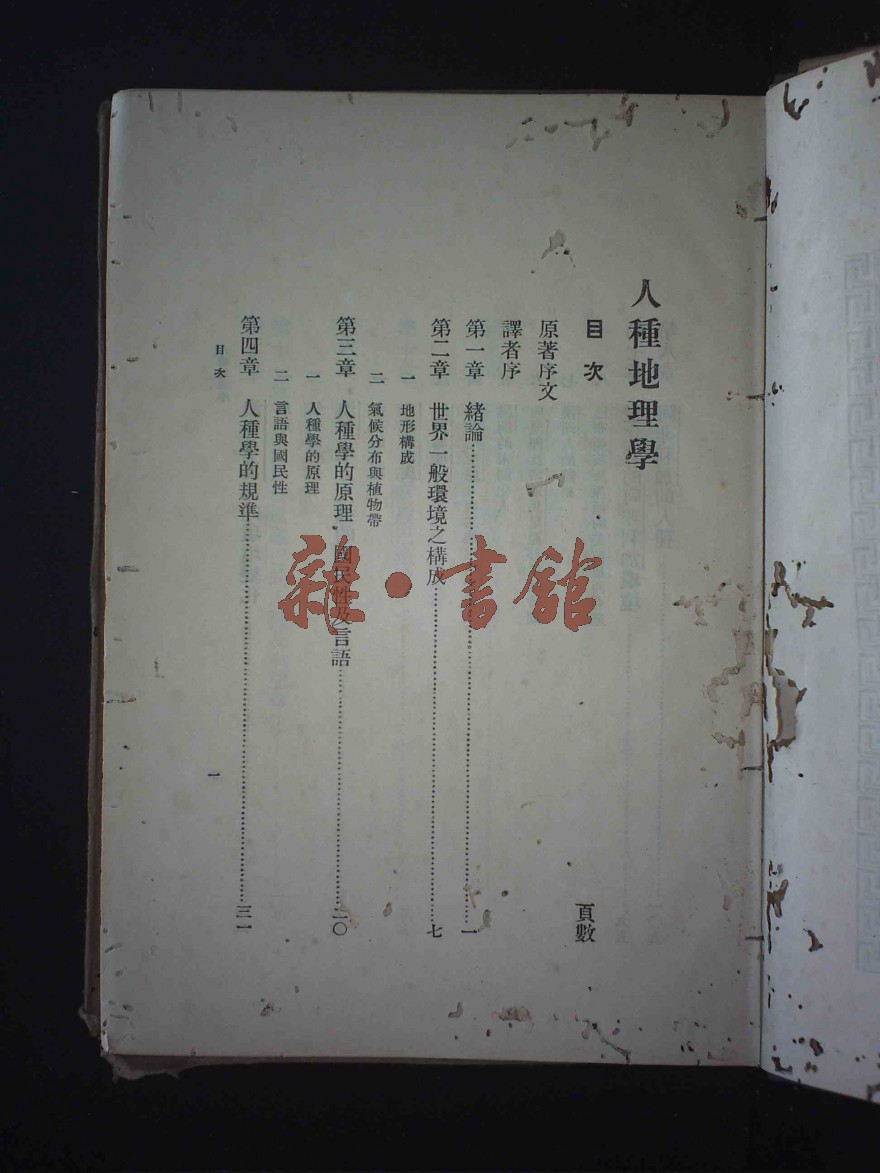 人種地理學
目次
頁數
原著序文
譯者序
第一章 緒論……一
第二章 世界一般環境之構成……七
一 地形構成
二 氣候分布與植物帶
第三章 人種學的原理 國民性及言語……二〇
一 人種學的原理
二 言語與國民性
第四章 人種學的規準……三一
目次
一
雜·書館